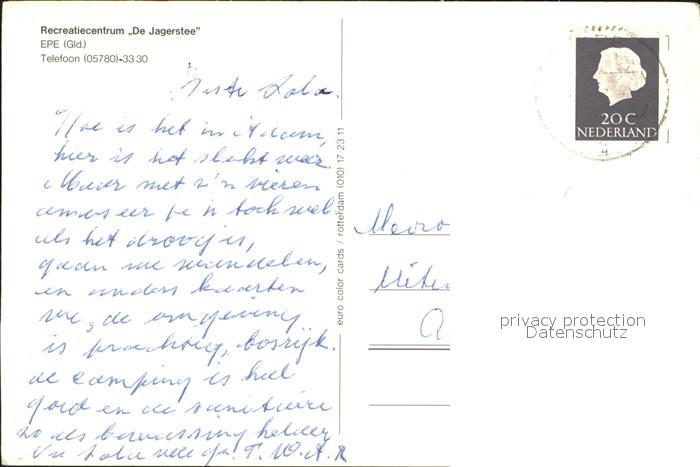 Recreatiecentrum „De Jagerstee”
EPE (Gld.)
Telefoon (05780)-33 30
Beste Lola.
Hoe is het in A'dam,
hier is het slecht weer.
Maar met z'n vieren
amuseer je je toch wel.
als het droog is,
gaan we wandelen,
en anders kaarten
we, de omgeving
is prachtig, bosrijk.
de camping is heel
goed en de sanitaire
zo als bewassing helder
Nu Lola vele gr. T. W. A. R
euro color cards / rotterdam (010) 17 23 11
20 C
NEDERLAND
Mevro
Uiter
A
privacy protection
Datenschutz